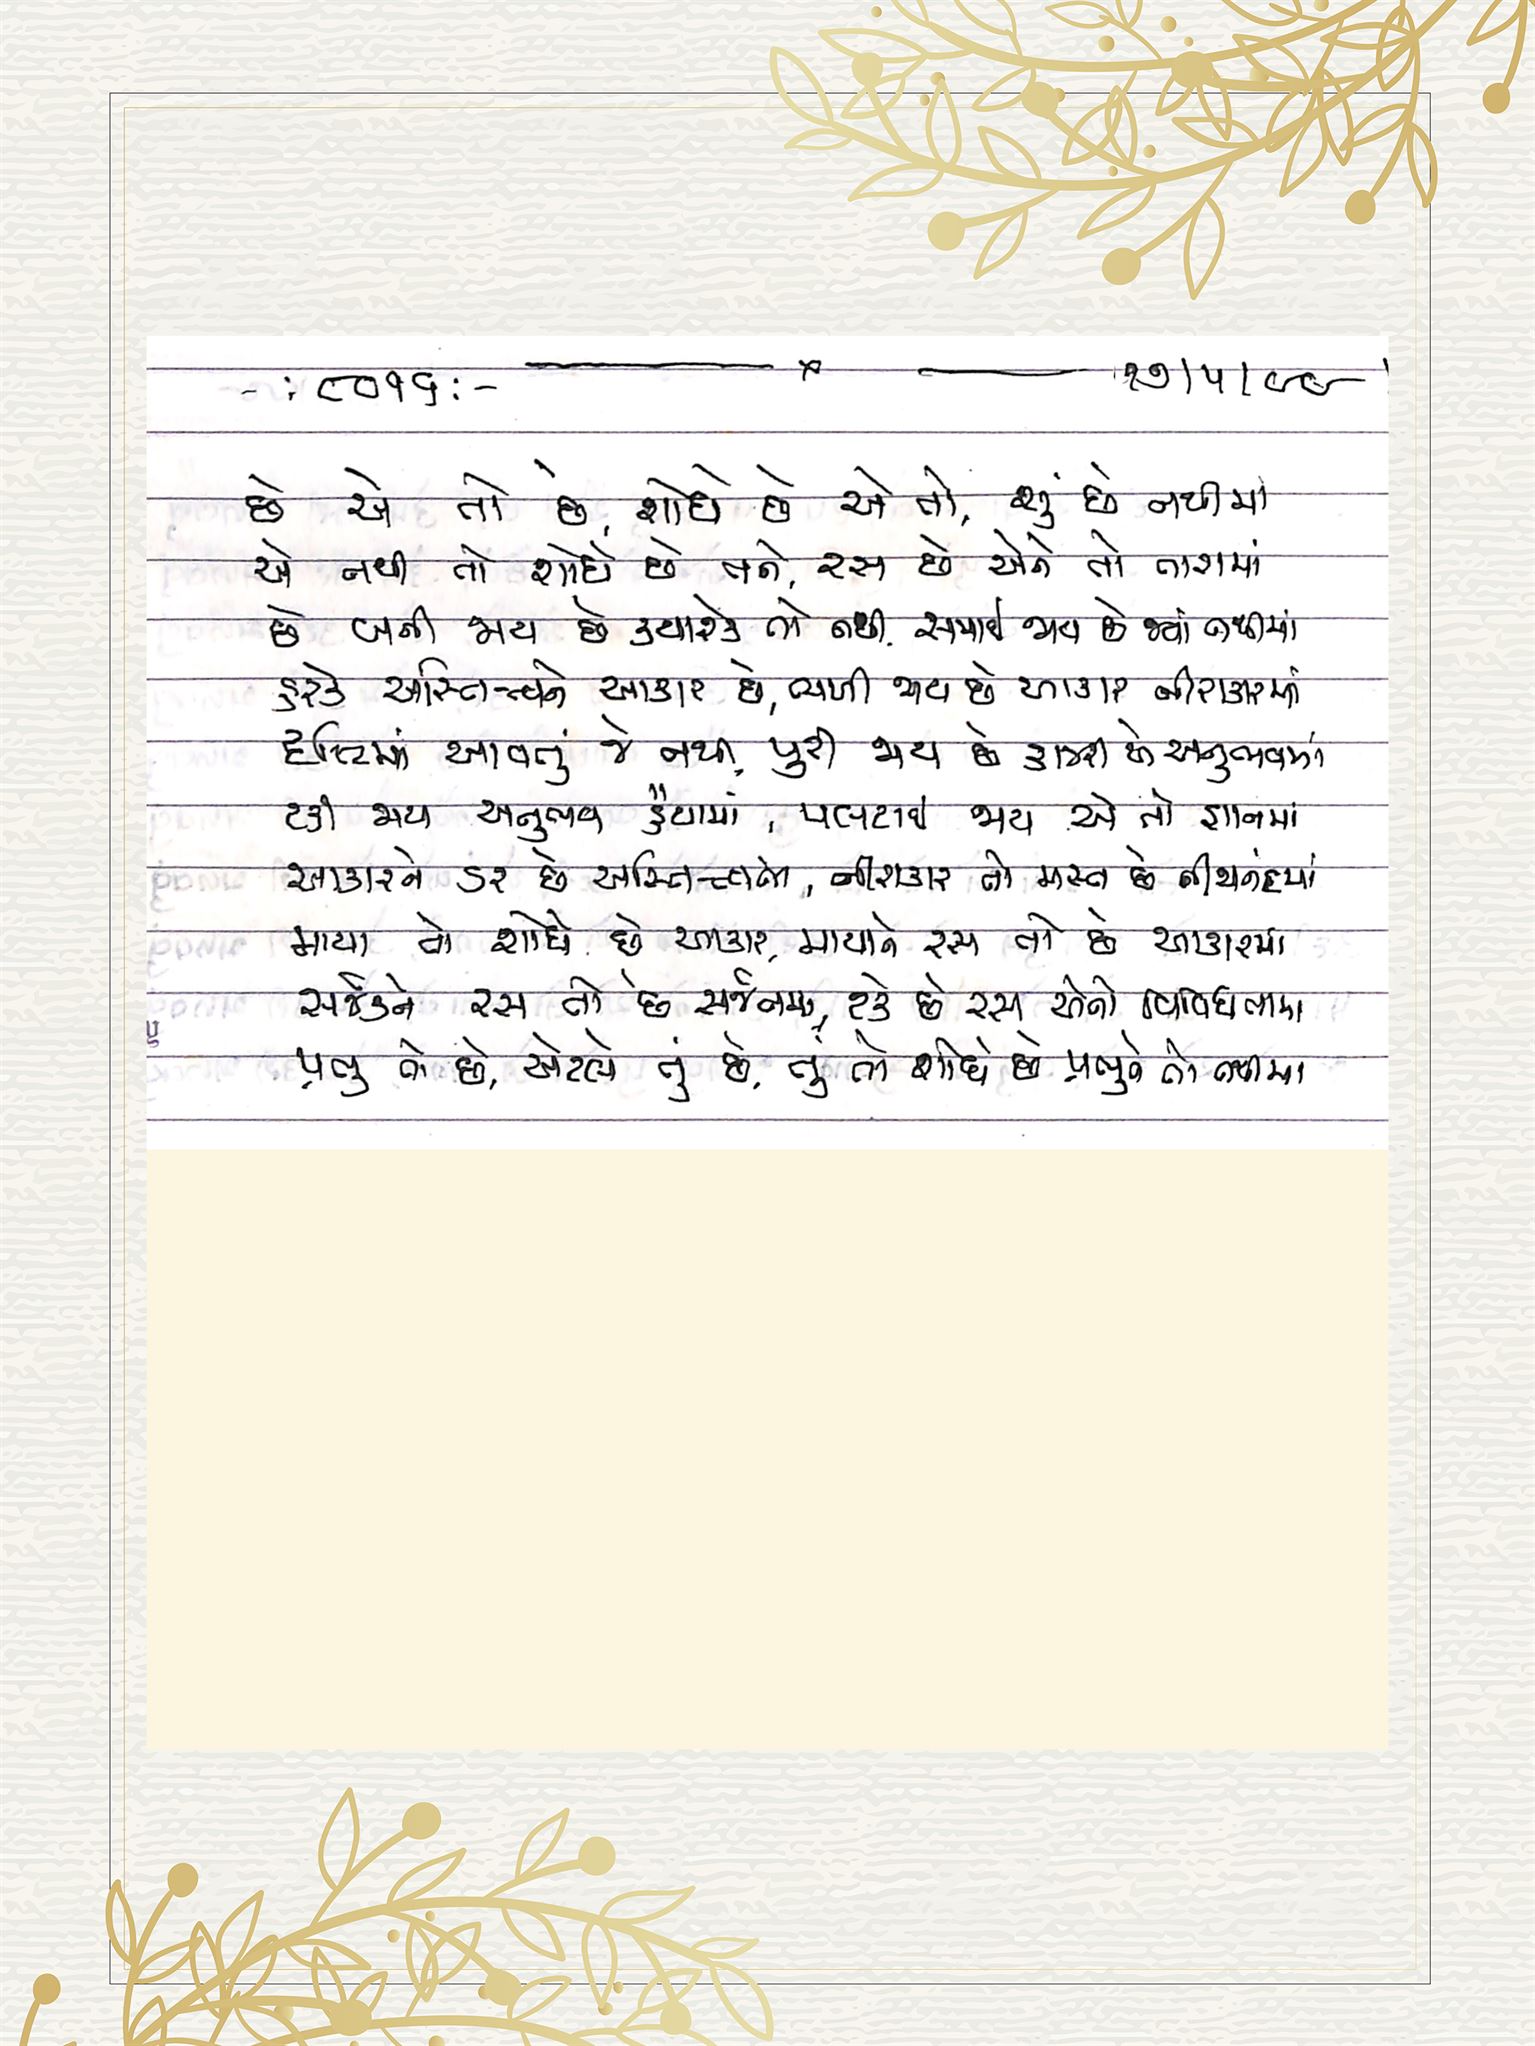 -: ૮૦૧૬ :- ૨૭/૫/૯૯
છે એ તો છે, શોધે છે એ તો, શું છે નથીમાં
એ નથી તો શોધે છે તને, રસ છે એને તો નાશમાં
છે બની જાય છે ક્યારેક તો નથી, સમાઈ જાય છે જ્યાં નથીમાં
દરેક અસ્તિત્વને આકાર છે, બની જાય છે આકાર નીરાકારમાં
દૃષ્ટિમાં આવતું જે નથી, પુરી જાય છે હાજરી એ અનુભવમાં
ટકી જાય અનુભવ હૈયામાં, પલટાઈ જાય એ તો જ્ઞાનમાં
આકારને ડર છે અસ્તિત્વનો, નીરાકાર તો મસ્ત છે નીજાનંદમાં
માયા તો શોધે છે આકાર, માયાને રસ તો છે આકારમાં
સર્જકને રસ તો છે સર્જનમાં, ટકે છે રસ એનો વિવિધતામાં
પ્રભુ તો છે, એટલે તું છે, તું તો શોધે છે પ્રભુને તો નથીમાં